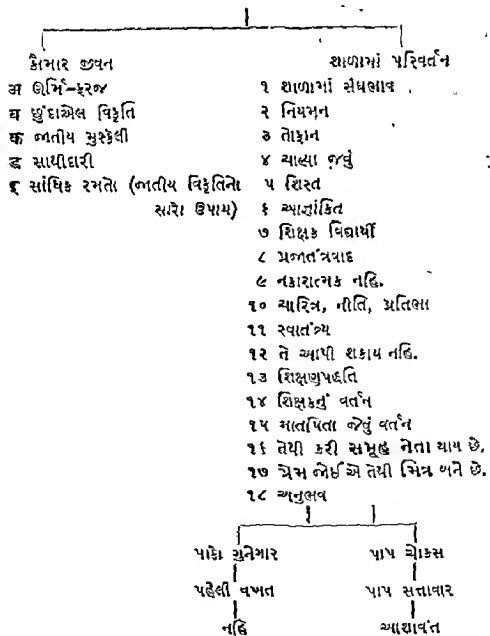 કૌમાર જીવન
अ ઊર્મિ-ફરજ
ब છુંદાએલ વિકૃતિ
क જાતીય મુસ્કેલી
ड સાથીદારી
इ સાંઘિક રમતો (જાતીય વિકૃતિનો
સારો ઉપાય)
શાળામાં પરિવર્તન
૧ શાળામાં સંઘભાવ
૨ નિયમન
૩ તોફાન
૪ ચાલ્યા જવું
૫ શિસ્ત
૬ આજ્ઞાંકિત
૭ શિક્ષક વિદ્યાર્થી
૮ પ્રજાતંત્રવાદ
૯ નકારાત્મક નહિ.
૧૦ ચારિત્ર, નીતિ, પ્રતિભા
૧૧ સ્વાતંત્ર્ય
૧૨ તે આપી શકાય નહિ.
૧૩ શિક્ષણપદ્ધતિ
૧૪ શિક્ષકનું વર્તન
૧૫ માતપિતા જેવું વર્તન
૧૬ તેથી કરી સમૂહ નેતા થાય છે.
૧૭ પ્રેમ જોઈ એ તેથી મિત્ર બને છે.
૧૮ અનુભવ
પાકો ગુનેગાર
પહેલી વખત
નહિ
પાપ ચોકસ
પાપ સત્તાવાર
આશાવંત